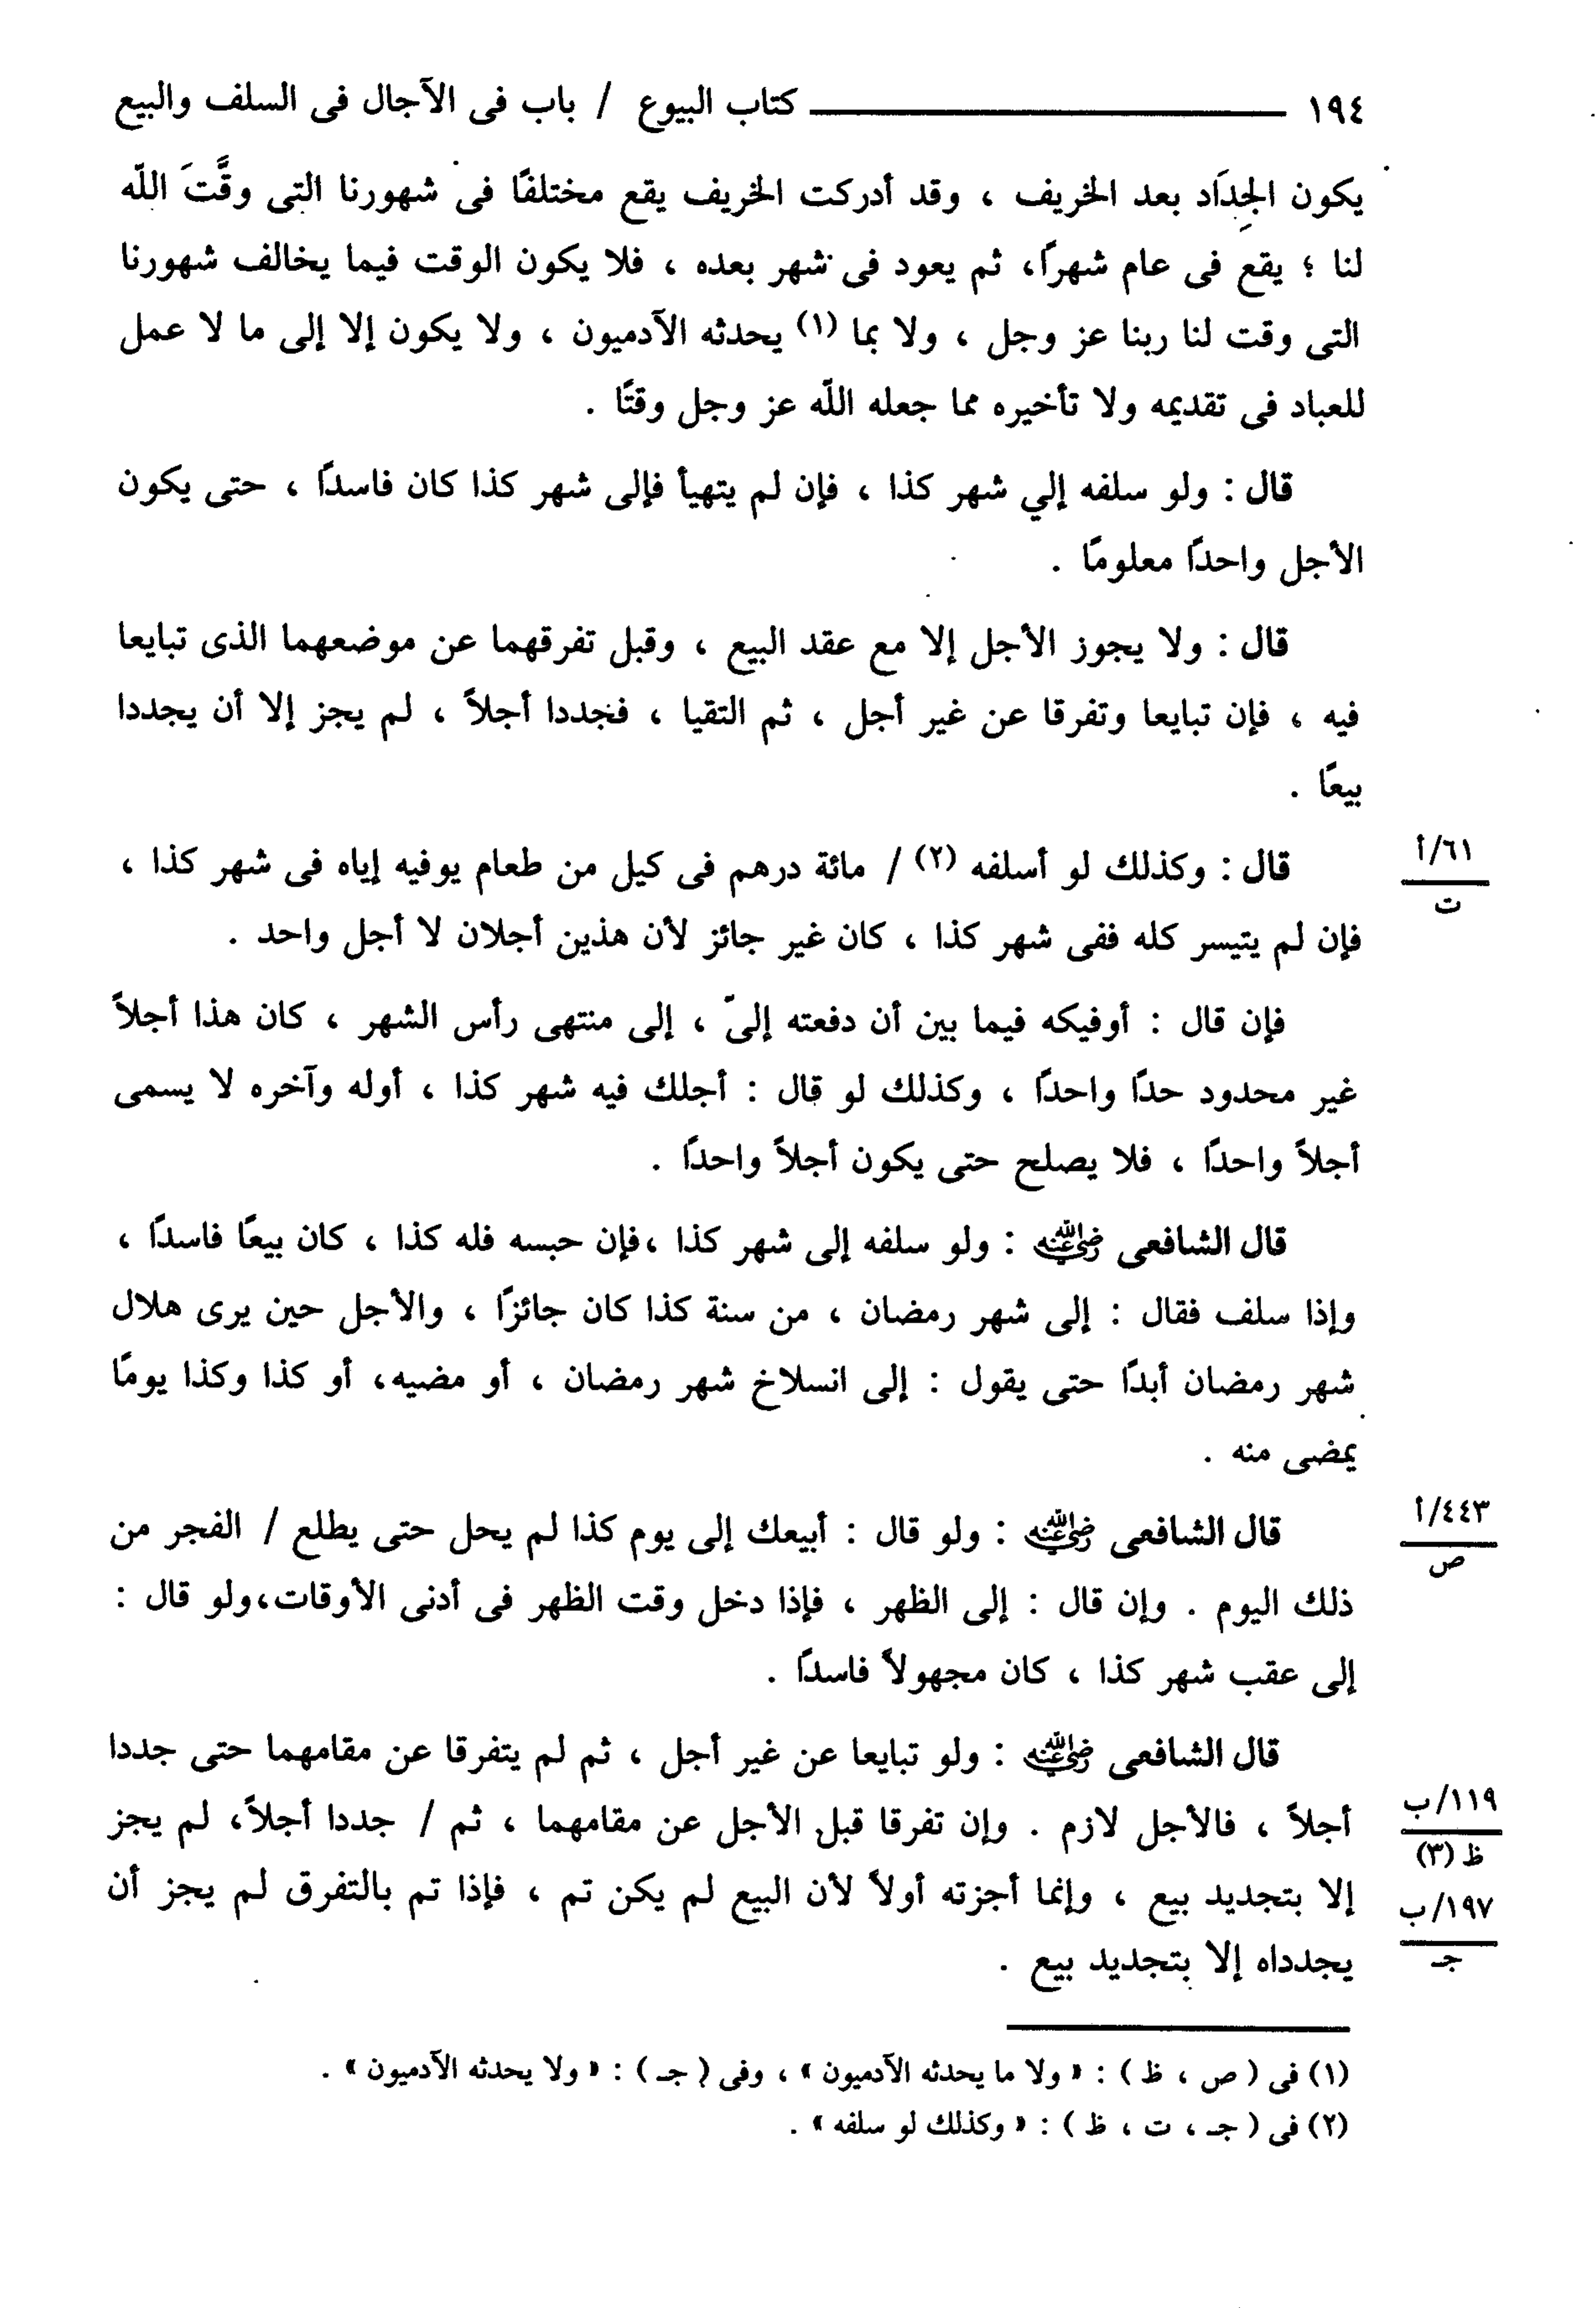 ١٩٤ ـــــــــــــــــــــ كتاب البيوع / باب فى الآجال فى السلف والبيع
يكون الجِدَاد بعد الخريف ، وقد أدركت الخريف يقع مختلفًا فى شهورنا التى وقَّتَ اللّه
لنا ؛ يقع فى عام شهرًا، ثم يعود فى شهر بعده ، فلا يكون الوقت فيما يخالف شهورنا
التى وقت لنا ربنا عز وجل ، ولا بما (١) يحدثه الآدميون ، ولا يكون إلا إلى ما لا عمل
للعباد فى تقديمه ولا تأخيره مما جعله اللّه عز وجل وقتًا .
قال : ولو سلفه إلي شهر كذا ، فإن لم يتهيأ فإلى شهر كذا كان فاسدًا ، حتى يكون
الأجل واحدًا معلومًا .
قال : ولا يجوز الأجل إلا مع عقد البيع ، وقبل تفرقهما عن موضعهما الذى تبايعا
فيه ، فإن تبايعا وتفرقا عن غير أجل ، ثم التقيا ، فجددا أجلاً ، لم يجز إلا أن يجددا
بيعًا .
٦١/أ
ت
قال : وكذلك لو أسلفه (٢) / مائة درهم فى كيل من طعام يوفيه إياه فى شهر كذا ،
فإن لم يتيسر كله ففى شهر كذا ، كان غير جائز لأن هذين أجلان لا أجل واحد .
فإن قال : أوفيكه فيما بين أن دفعته إلىّ ، إلى منتهى رأس الشهر ، كان هذا أجلاً
غير محدود حدًا واحدًا ، وكذلك لو قال : أجلك فيه شهر كذا ، أوله وآخره لا يسمى
أجلاً واحدًا ، فلا يصلح حتى يكون أجلاً واحدًا .
قال الشافعى رضي الله عنه : ولو سلفه إلى شهر كذا ،فإن حبسه فله كذا ، كان بيعًا فاسدًا ،
وإذا سلف فقال : إلى شهر رمضان ، من سنة كذا كان جائزًا ، والأجل حين يرى هلال
شهر رمضان أبدًا حتى يقول : إلى انسلاخ شهر رمضان ، أو مضيه، أو كذا وكذا يومًا
يمضى منه .
٤٤٣/أ
ص
قال الشافعى رضي الله عنه : ولو قال : أبيعك إلى يوم كذا لم يحل حتى يطلع / الفجر من
ذلك اليوم . وإن قال : إلى الظهر ، فإذا دخل وقت الظهر فى أدنى الأوقات،ولو قال :
إلى عقب شهر كذا ، كان مجهولاً فاسدًا .
قال الشافعى رضي الله عنه : ولو تبايعا عن غير أجل ، ثم لم يتفرقا عن مقامهما حتى جددا
١١٩/ب
ظ (٣)
أجلاً ، فالأجل لازم . وإن تفرقا قبل الأجل عن مقامهما ، ثم / جددا أجلاً، لم يجز
١٩٧/ب
جـ
إلا بتجديد بيع ، وإنما أجزته أولاً لأن البيع لم يكن تم ، فإذا تم بالتفرق لم يجز أن
يجدداه إلا بتجديد بيع .
(١) فى ( ص ، ظ ) : « ولا ما يحدثه الآدميون » ، وفى ( جـ ) : « ولا يحدثه الآدميون » .
(٢) فى ( جـ ، ت ، ظ ) : « وكذلك لو سلفه » .